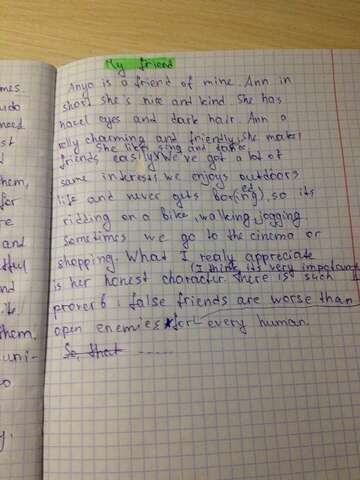 My friend
Anya is a friend of mine. Ann in
short she's nice and kind. She has
hazel eyes and dark hair. Ann a
rely charming and friendly, she makes
She likes sing and dance.
friends easily. We've got a lot of
same interests we enjoys outdoors
life and never gets bor(ing)ed, so its
ridding on a bike, walking, jogging
Sometimes we go to the cinema or
shopping. What I realy appreciate
(I think, its very important
is her honest character. There is such
proverb: false friends are worse than
open enemies for every human.
So, that ......
mes
udo
need
st
d
hem,
for
re
and
tful
nd
it.
them.
uni-
o
y.